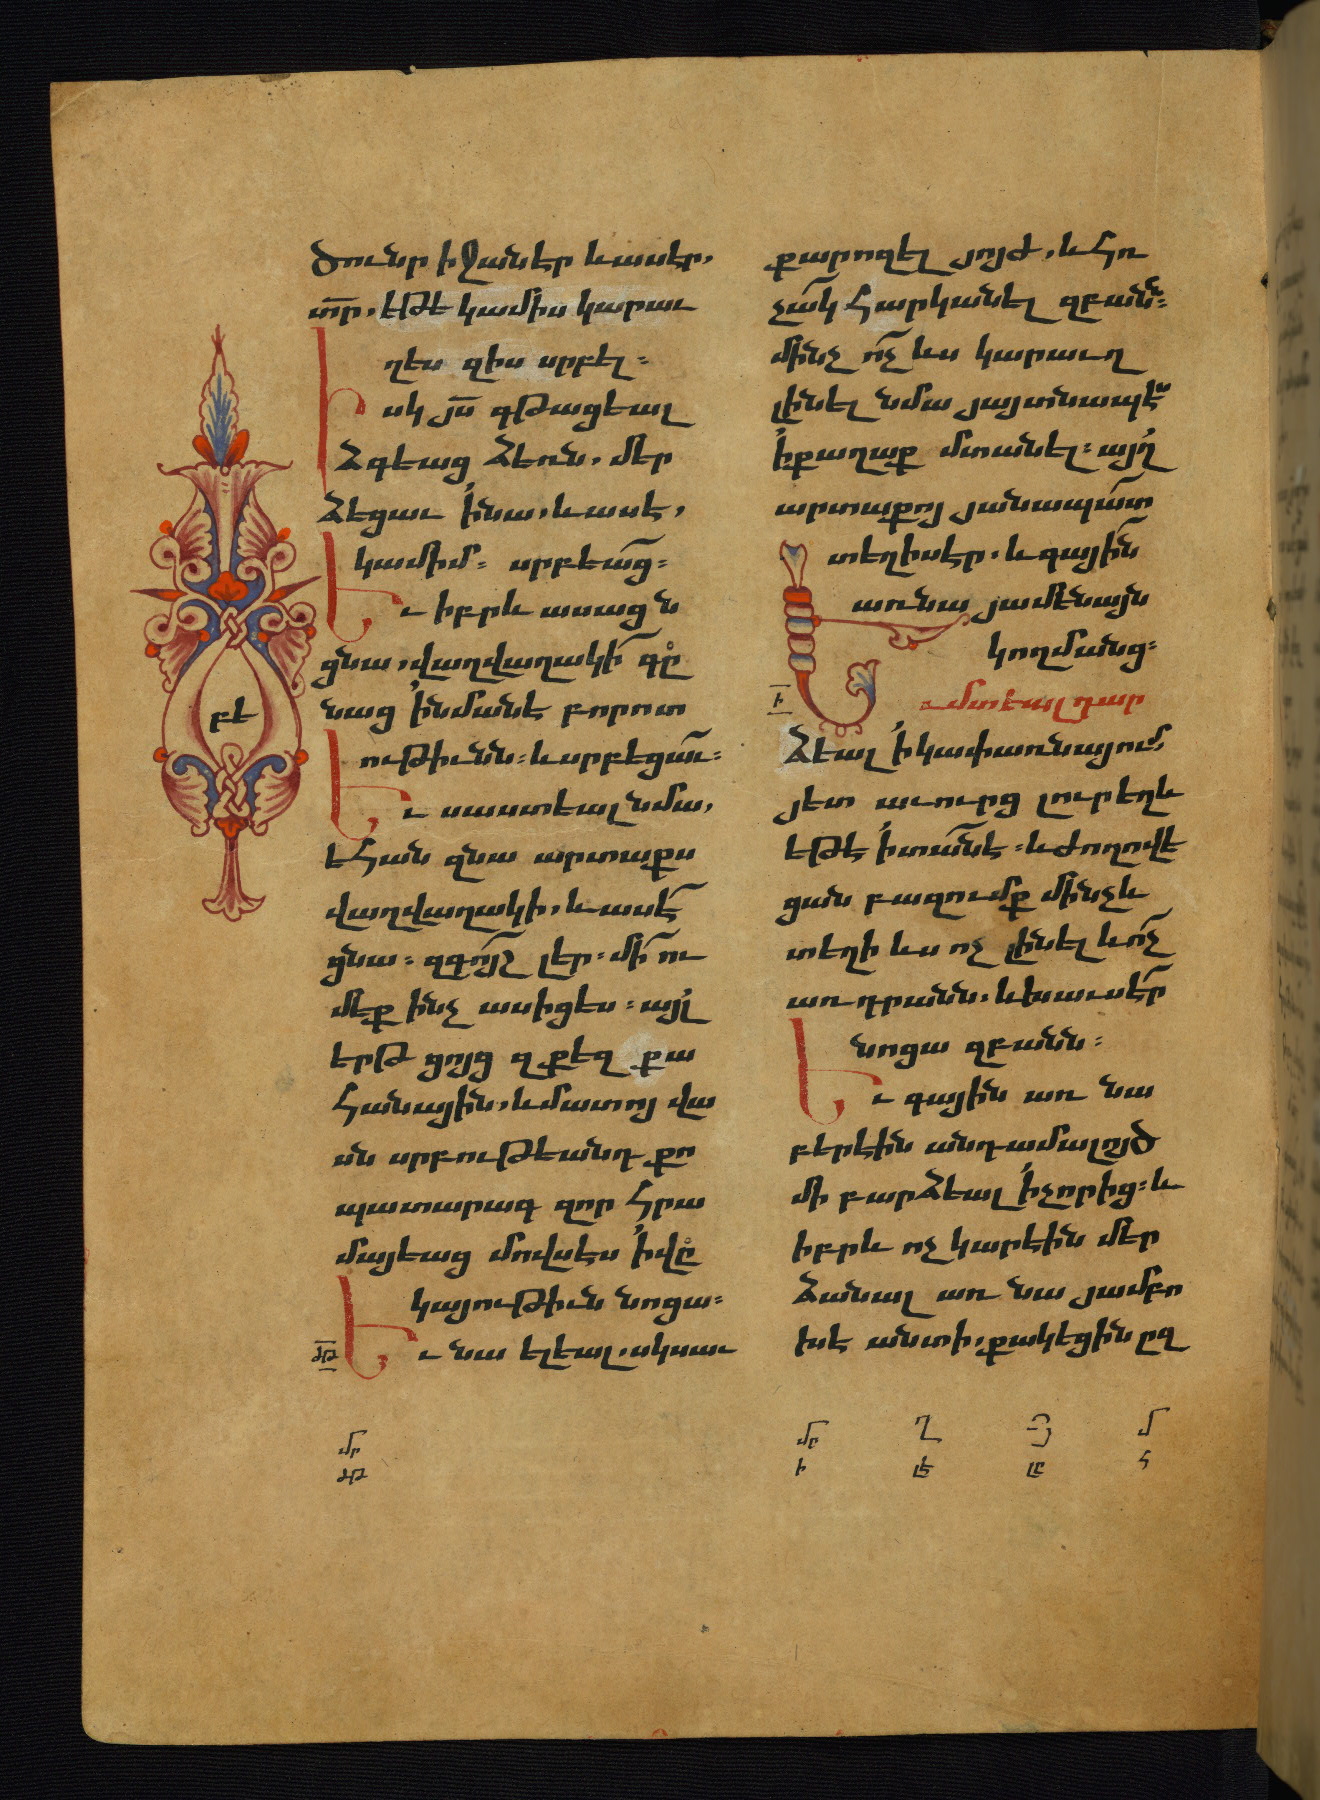 ծունր իջանէր և ասէր,
տ՜ր, եթէ կամիս կարաւ
ղես զիս սրբել։
Իսկ յ՜ս գթացեալ
ձգեաց ձեռն, մեր
ձեցաւ ի նա, և ասէ,
կամիմ։ սրբեա՛ց։
Եւ իբրև ասաց ն
ցնա, վաղվաղակի՛ գը
նաց ի նմանէ բորոտ
ութիւնն։ և սրբեցա՛ւ։
Եւ սաստեալ նմա,
եհան զնա արտաքս
վաղվաղակի, և ասէ՛
ցնա։ զգո՛յշ լեր։ մի՛ ու
մեք ինչ ասիցես։ այլ
երթ ցոյց զքեզ քա
հանային, և մատո վա
սն սրբութեանդ քո
պատարագ զոր հրա
մայեաց մովսէս ի վը
կայութիւն նոցա։
Եւ նա ելեալ, սկսաւ
բէ
ԺԹ
մր
ԺԹ
քարոզել յոյժ, և հռ
չա՛կ հարկանել զբանն։
մինչ ո՛չ ևս կարաւղ
լինել նմա յայտնապէս
ի քաղաք մտանել։ այլ
արտաքոյ յանապա՛տ
տեղիսէր, և գային
առնա յամենայն
կողմանց։
Ի
Եւ մտեալ դար
ձեալ ի կափառնայում,
յետ աւուրց լուր եղև
եթէ ի տա՛նէ։ և ժողովե
ցան բազումք մինչև
տեղի ևս ոչ լինել և ո՛չ
առ դրանն, և խաւսէ՛ր
նոցա զբանն։
Եւ գային առ նա
բերէին անդամալոյծ
մի բարձեալ ի չորից։ և
իբրև ոչ կարէին մեր
ձանալ առ նա յամբո
խէ անտի, քակեցին ըզ
մը ղ յ մ
ի լէ լը հ